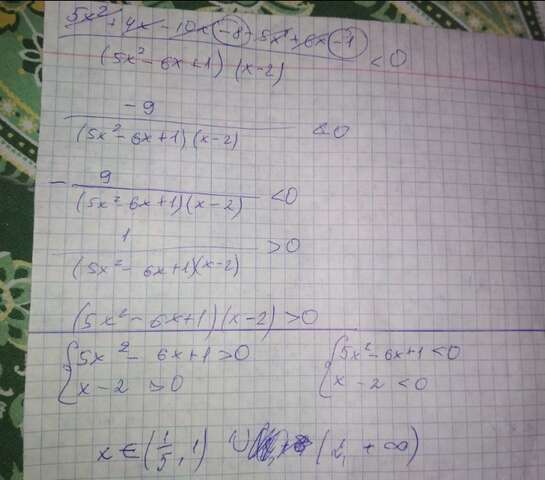 5x² + 4x - 10x - 8 - 5x² + 6x - 1
(5x² - 6x + 1) (x - 2) < 0
- 9
(5x² - 6x + 1) (x - 2) < 0
- 9
(5x² - 6x + 1) (x - 2) < 0
1
(5x² - 6x + 1)(x - 2) > 0
(5x² - 6x + 1) (x - 2) > 0
{ 5x² - 6x + 1 > 0 { 5x² - 6x + 1 < 0
x - 2 > 0 x - 2 < 0
x ∈ (1/5, 1) ∪ (2, + ∞)